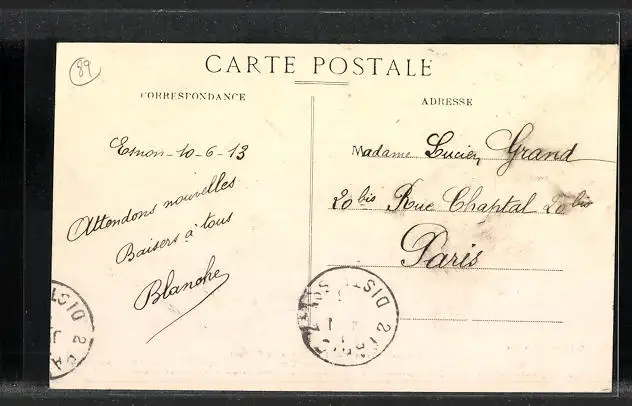 89
CARTE POSTALE
CORRESPONDANCE
ADRESSE
10-6-13
Attendons nouvelles
Baisers à tous
Blanche
Madame Lucien Grand
20 bis Rue Chaptal 20 bis
Paris
DIST
DIST